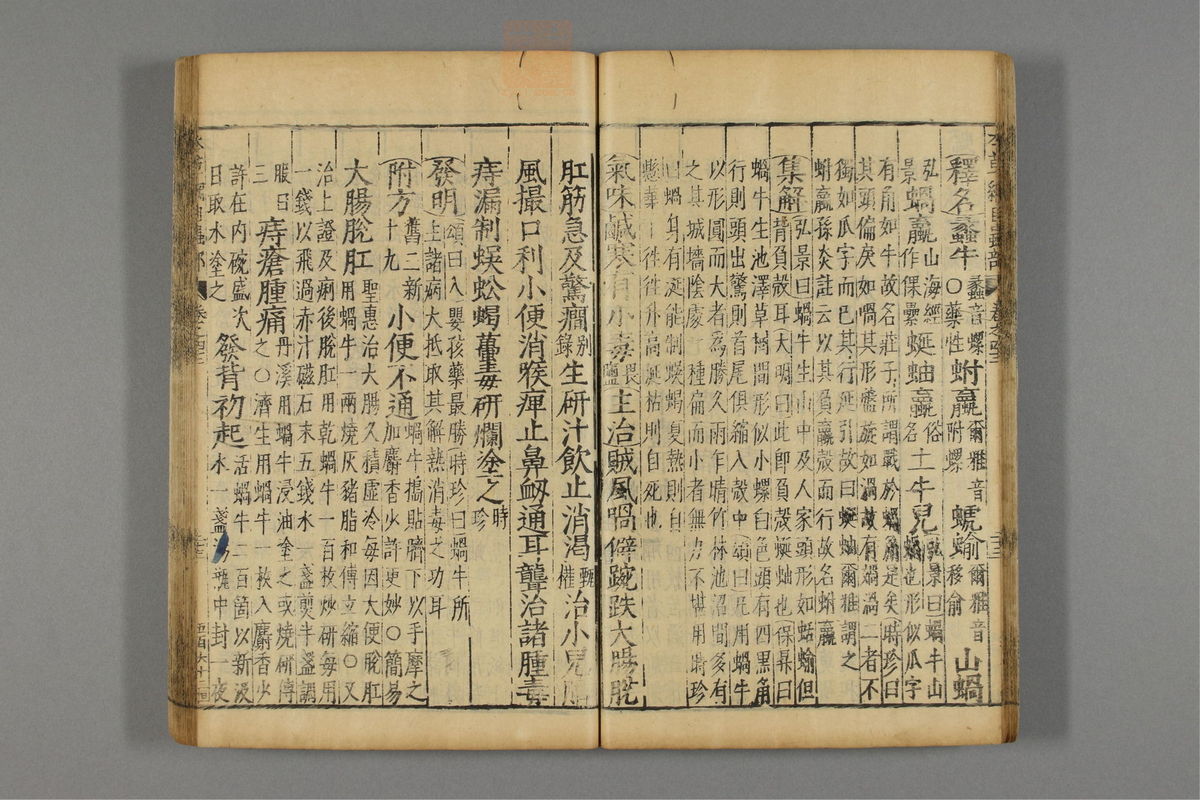 釋名蠡牛蠡音螺○藥性蚹蠃爾雅音附螺螔蝓爾雅音移俞山蝸
弘景蝸蠃山海經作倮壘蜒蚰蠃俗名土牛兒弘景曰蝸牛山蝸也形似瓜字
有角如牛故名莊子所謂戰於蝸角是矣時珍曰
其頭偏戾如喎其形盤旋如渦故有媧渦二者不
獨如瓜字而已其行延引故曰蜒蚰爾雅謂之
蚹蠃孫炎註云以其負蠃殼而行故名蚹蠃
集解弘景曰蝸牛生山中及人家頭形如蛞蝓但背負殼耳大明曰此即負殼蜒蚰也保昇曰
蝸牛生池澤草樹間形似小螺白色頭有四黑角
行則頭出驚則首尾俱縮入殼中頌曰凡用蝸牛
以形圓而大者爲勝久雨乍晴竹林池沼間多有
之其城墻陰處一種扁而小者無力不堪用時珍
曰蝸身有涎能制蜈蝎夏熱則自
懸葉下往往升高涎枯則自死也
氣味鹹寒有小毒畏鹽主治賊風喎僻踠跌大腸脫
肛筋急及驚癇別錄生研汁飲止消渴甄權治小兒臍
風撮口利小便消喉痺止鼻衂通耳聾治諸腫毒
痔漏制蜈蚣蝎蠆毒研爛塗之時珍
發明頌曰入嬰孩藥最勝時珍曰蝸牛所主諸病大抵取其解熱消毒之功耳
附方舊二新十九小便不通蝸牛搗貼臍下以手摩之加麝香少許更妙○簡易
大腸脫肛聖惠治大腸久積虛冷每因大便脫肛用蝸牛一兩燒灰豬脂和傅立縮○又
治上證及痢後脫肛用乾蝸牛一百枚炒研每用
一錢以飛過赤汁磁石末五錢水一盞煎半盞調
服日三痔瘡腫痛丹溪用蝸牛浸油塗之或燒研傅之○濟生用蝸牛一枚入麝香少
許在內碗盛次日取水塗之發背初起活蝸牛二百箇以新汲水一盞湯瓶中封一夜